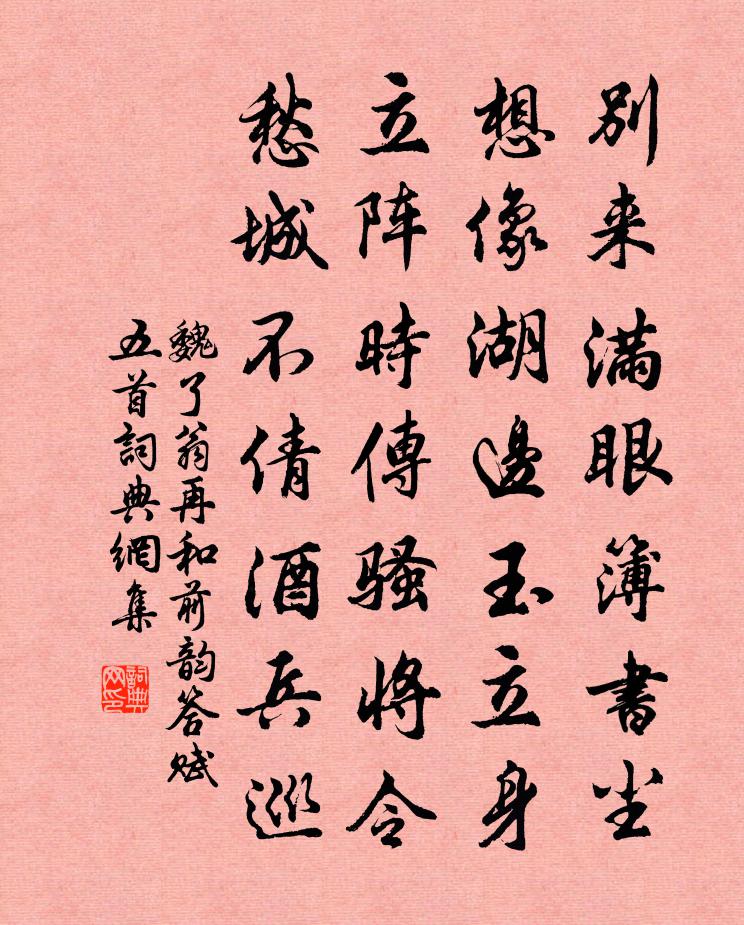 別来滿眼簿書尘
想像湖邊玉立身
立阵時傳骚將令
愁城不倩酒兵巡
魏了翁再和前韵答赋
五首詞典網集
詞典网印